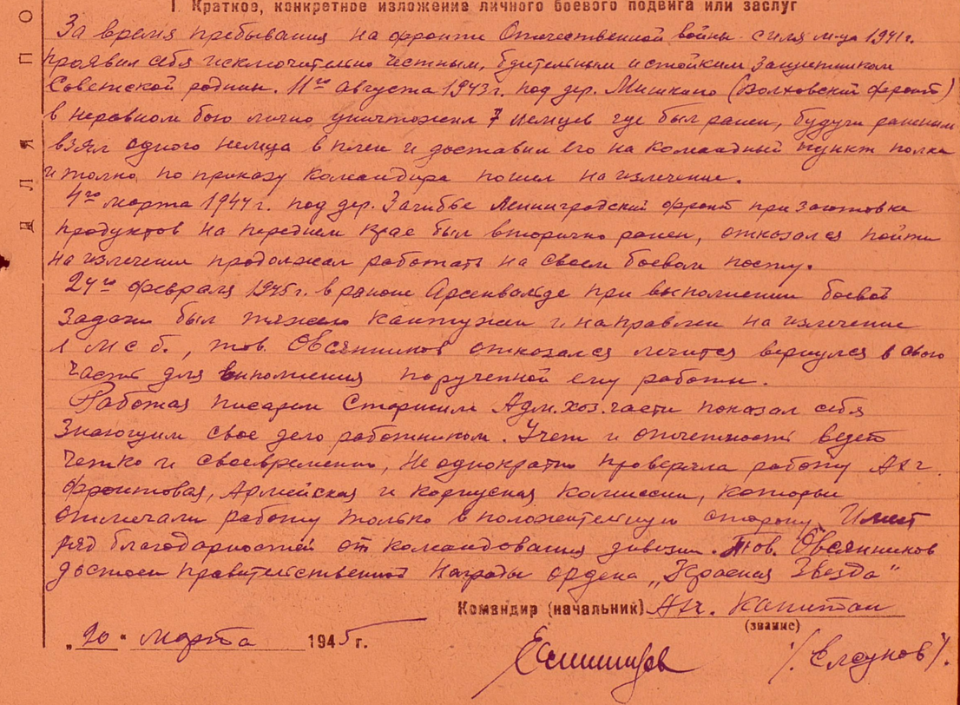 I. Краткое, конкретное изложение личного боевого подвига или заслуг
За время пребывания на фронте Отечественной войны с м-ца 1941 г.
проявил себя исключительно честным, бдительным и стойким защитником
Советской родины. 11го августа 1943 г. под дер. Мишкино (Волховский фронт)
в неравном бою лично уничтожил 7 немцев где был ранен, будучи раненым
взял одного немца в плен и доставил его на командный пункт полка
и толко по приказу командира пошел на излечение.
4го марта 1944 г. под дер. Загибье Ленинградский фронт при заготовке
продуктов на переднем крае был вторично ранен, отказался пойти
на излечение продолжал работать на своем боевом посту.
24го февраля 1945 г. в районе Арсенвальде при выполнении боевой
задачи был тяжело кантужен и направлен на излечение
1 МСБ, тов. Овсянников отказался лечится вернулся в свою
часть для выполнения порученной ему работы.
Работая писарем старшим Адм. хоз. части показал себя
знающим свое дело работником. Учет и отчетность ведет
четко и своевременно, не однократно проверяла работу АХЧ
фронтовая, Армейская и корпусная комиссии, которые
отмечали работу только в положительную сторону. Имеет
ряд благодарностей от командования дивизии. Тов. Овсянников
достоен правительственной награды ордена „Красная Звезда"
Командир (начальник) АХЧ. капитан
(звание)
„20" марта 1945 г.
ДЛЯ ПО